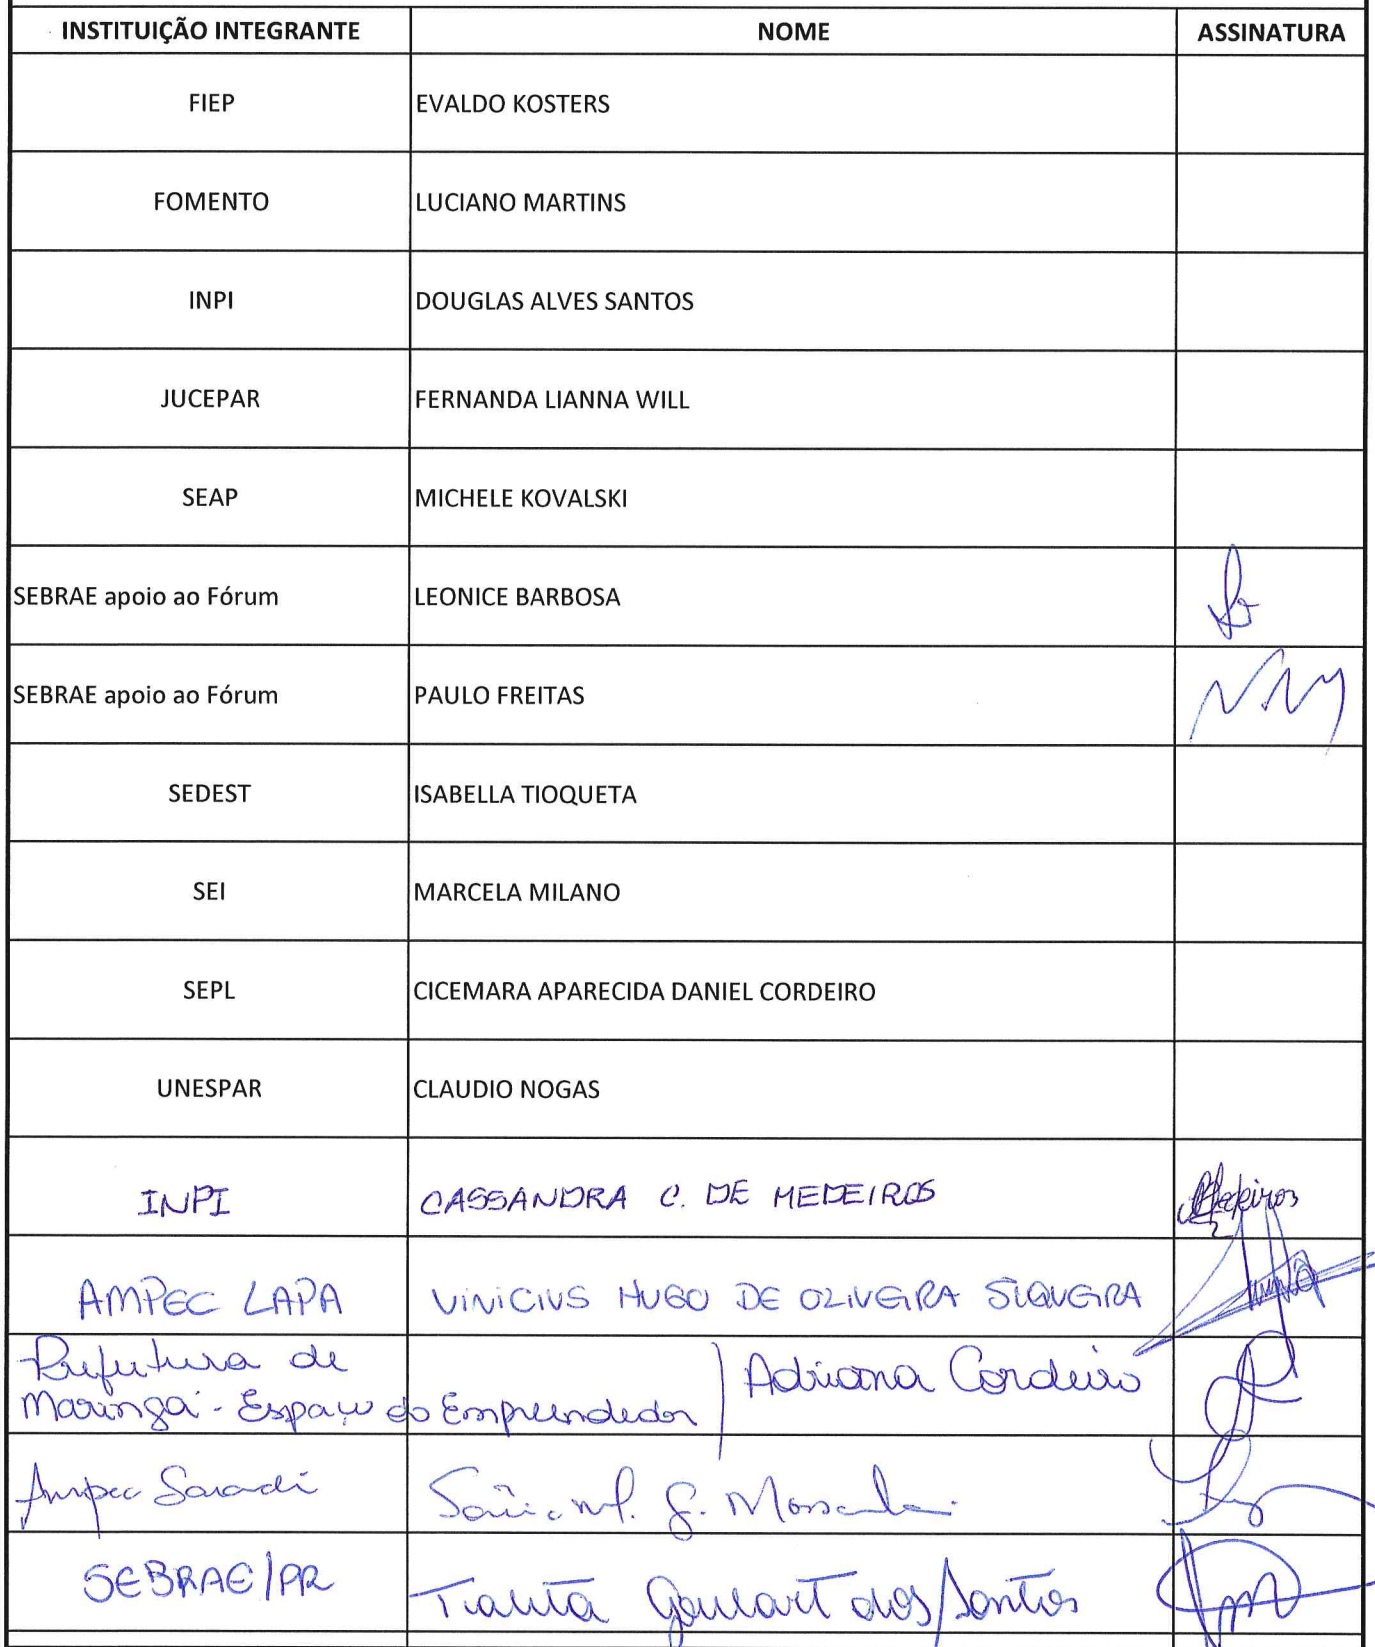 INSTITUIÇÃO INTEGRANTE NOME ASSINATURA
FIEP EVALDO KOSTERS
FOMENTO LUCIANO MARTINS
INPI DOUGLAS ALVES SANTOS
JUCEPAR FERNANDA LIANNA WILL
SEAP MICHELE KOVALSKI
SEBRAE apoio ao Fórum LEONICE BARBOSA
SEBRAE apoio ao Fórum PAULO FREITAS
SEDEST ISABELLA TIOQUETA
SEI MARCELA MILANO
SEPL CICEMARA APARECIDA DANIEL CORDEIRO
UNESPAR CLAUDIO NOGAS
INPI CASSANDRA C. DE MEDEIROS Medeiros
AMPEC LAPA VINICIUS HUGO DE OLIVEIRA SIQUEIRA
Prefeitura de
Maringá - Espaço do Empreendedor Adriana Cordeiro
Ampec Sarandi
SEBRAE/PR Goulart dos Santos